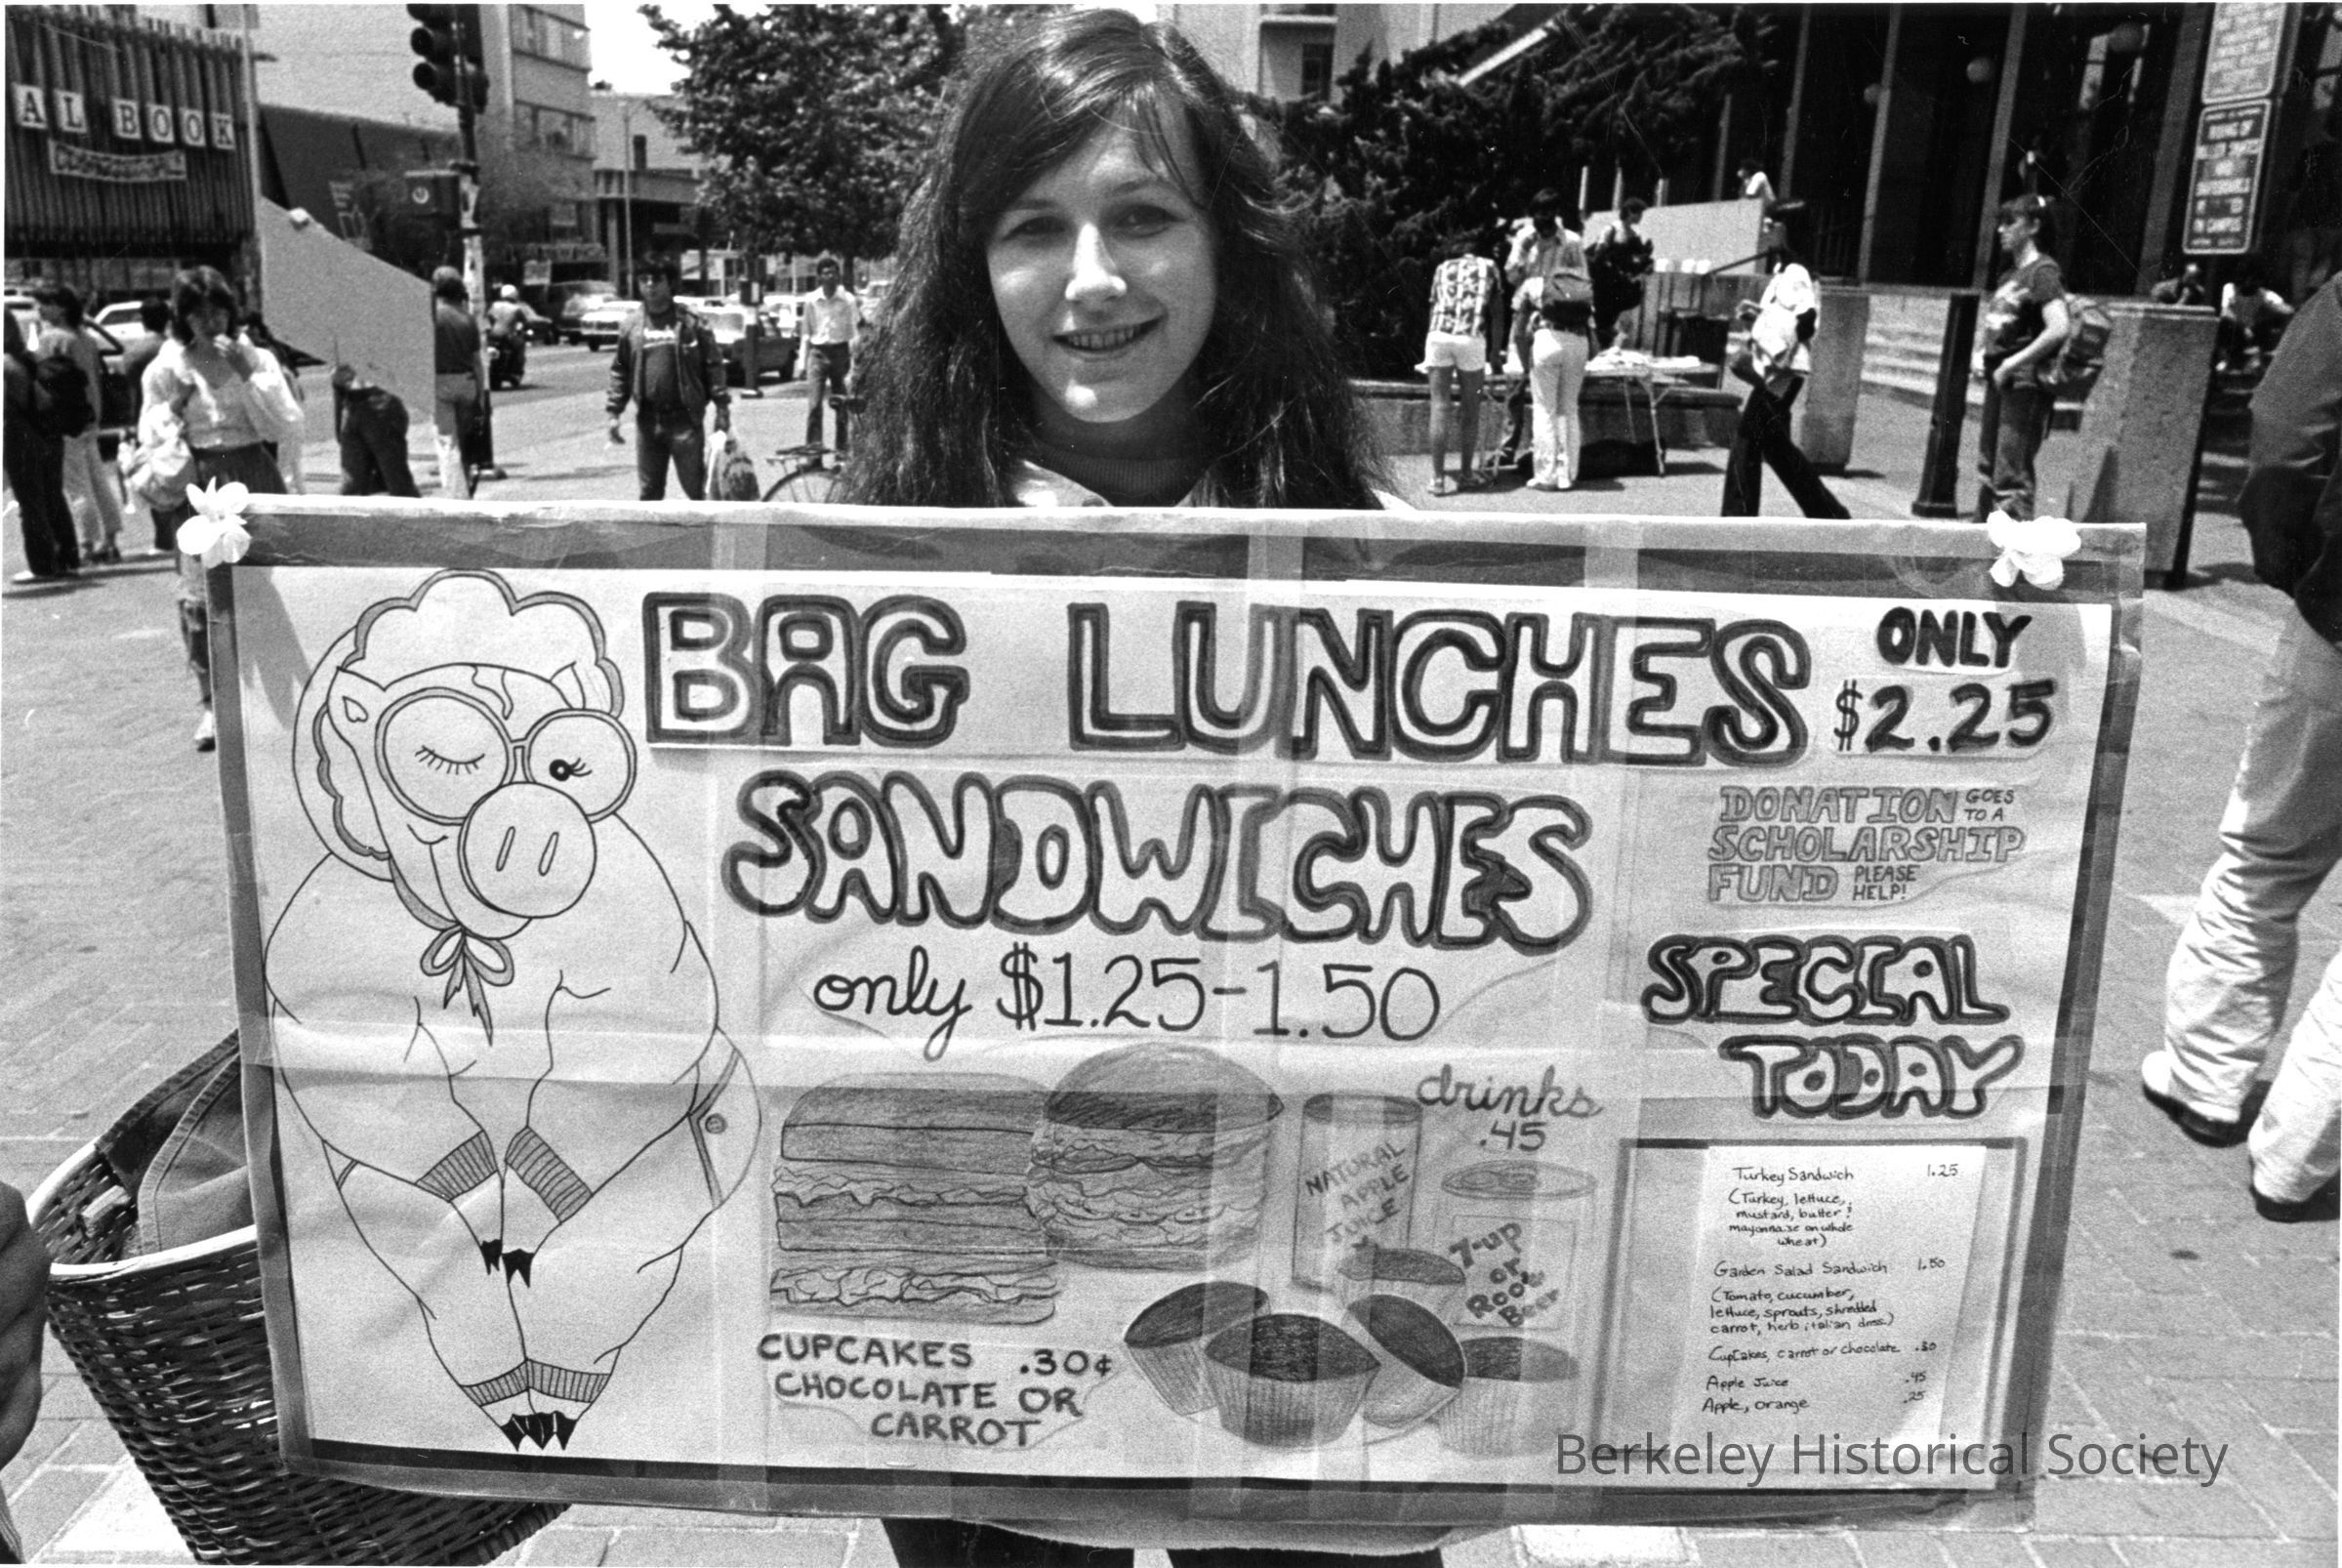 AL BOOK
BAG LUNCHES
ONLY
$2.25
SANDWICHES
only $1.25-1.50
DONATION GOES TO A
SCHOLARSHIP
FUND PLEASE HELP!
SPECIAL
TODAY
drinks
.45
NATURAL
APPLE
JUICE
7-up
or
Root
Beer
CUPCAKES .30¢
CHOCOLATE OR
CARROT
Turkey Sandwich 1.25
(Turkey, lettuce,
mustard, butter &
mayonnaise on whole
wheat)
Garden Salad Sandwich 1.50
(Tomato, cucumber,
lettuce, sprouts, shredded
carrot, herb italian dress.)
Cupcakes, carrot or chocolate .30
Apple Juice .45
Apple, orange .25
Berkeley Historical Society